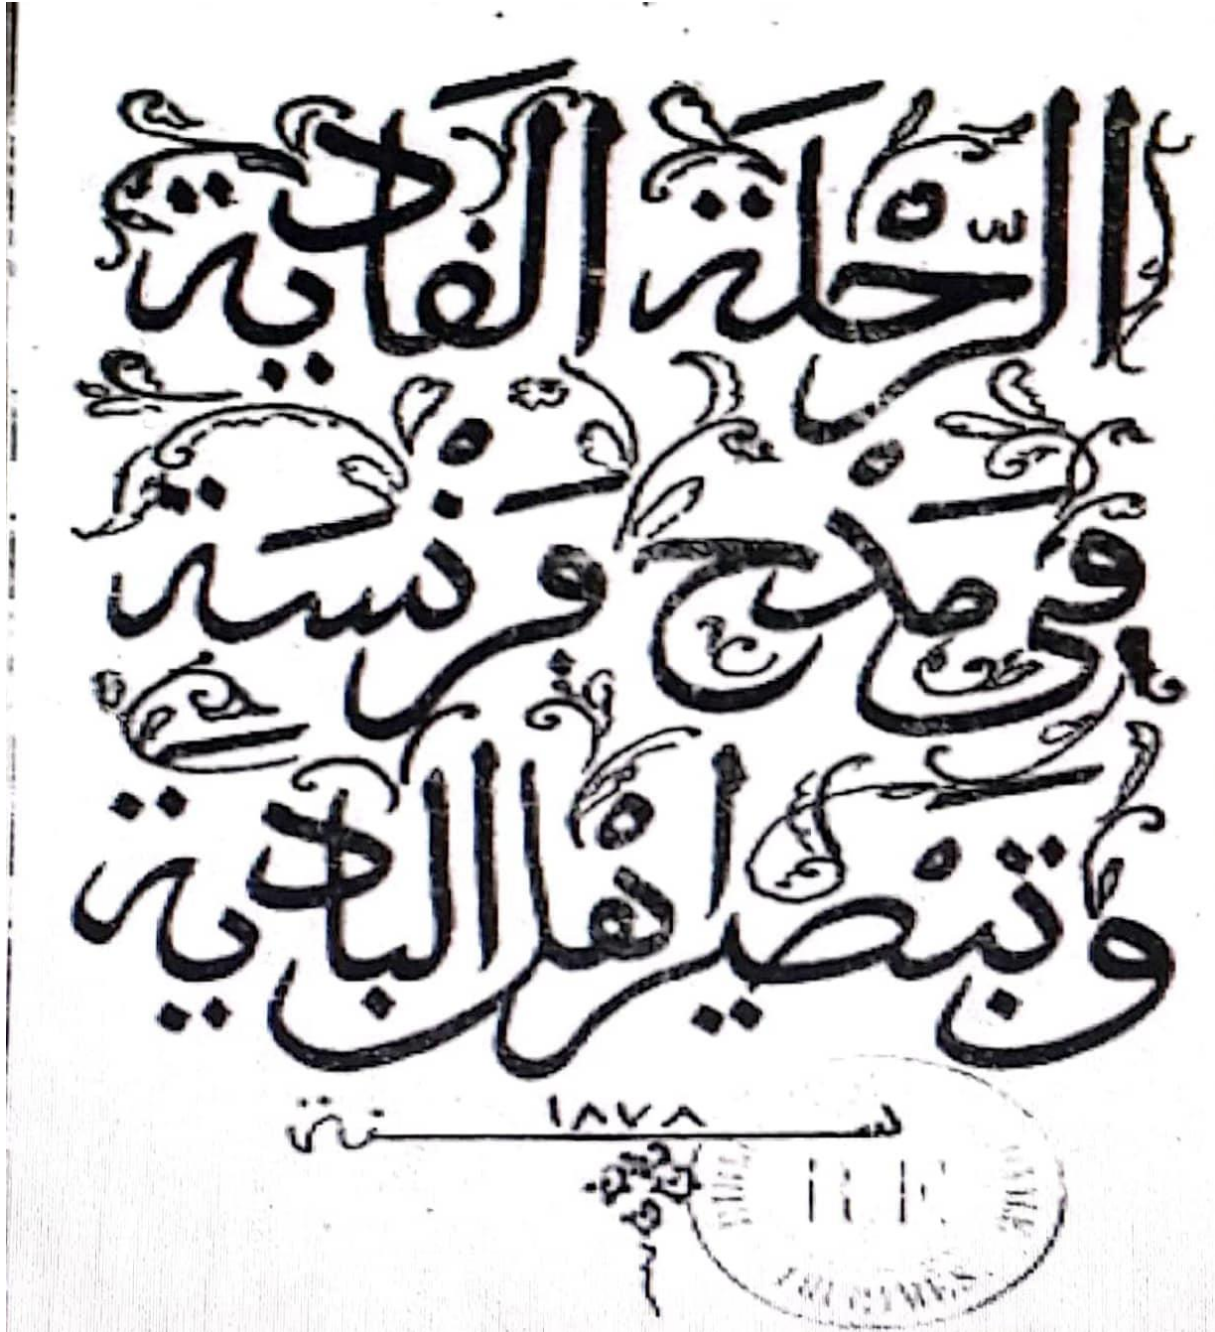 الرّحْلَة القَادية
في مَدْح فرَنْسَة
وتَبْصير اهْل البادية
سنة ١٨٧٨
R F